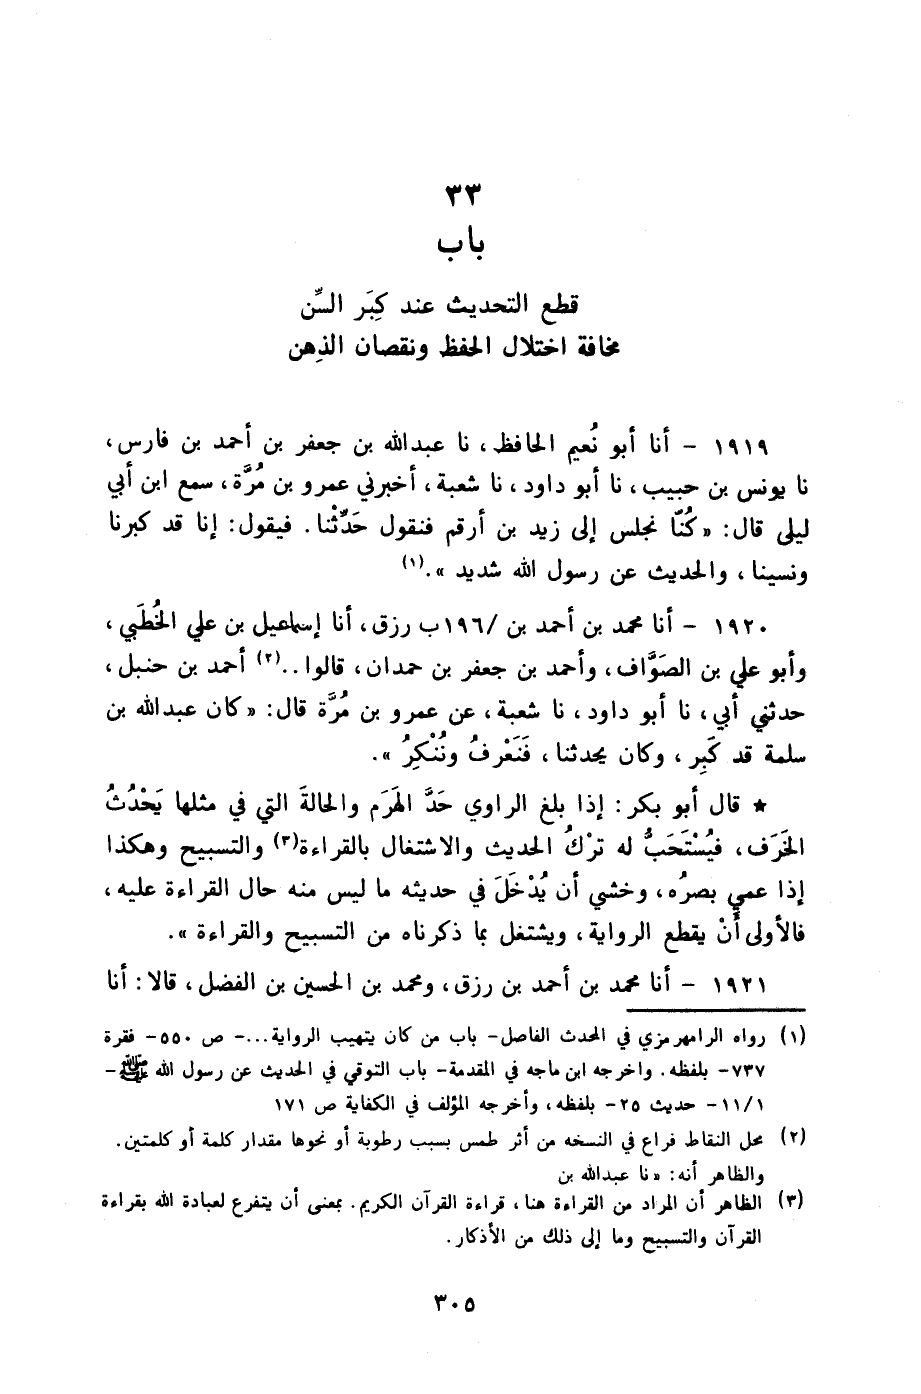 ٣٣
باب
قطع التحديث عند كِبَر السِّن
مخافة اختلال الحفظ ونقصان الذِهن
١٩١٩ - أنا أبو نُعيم الحافظ، نا عبدالله بن جعفر بن أحمد بن فارس،
نا يونس بن حبيب، نا أبو داود، نا شعبة، أخبرني عمرو بن مُرَّة، سمع ابن أبي
ليلى قال: «كُنّا نجلس إلى زيد بن أرقم فنقول حَدِّثْنا. فيقول: إنا قد كبرنا
ونسينا، والحديث عن رسول الله شديد».(١)
١٩٢٠ - أنا محمد بن أحمد بن /١٩٦ب رزق، أنا إسماعيل بن علي الخُطَبي،
وأبو علي بن الصَوَّاف، وأحمد بن جعفر بن حمدان، قالوا..(٢) أحمد بن حنبل،
حدثني أبي، نا أبو داود، نا شعبة، عن عمرو بن مُرَّة قال: «كان عبدالله بن
سلمة قد كَبِر، وكان يحدثنا، فَنَعْرفُ ونُنْكِرُ».
★ قال أبو بكر: إذا بلغ الراوي حَدَّ الهَرَم والحالةَ التي في مثلها يَحْدُثُ
الخَرَف، فيُسْتَحَبُّ له ترْكُ الحديث والاشتغال بالقراءة(٣) والتسبيح وهكذا
إذا عمي بصرُه، وخشي أن يُدْخَلَ في حديثه ما ليس منه حال القراءة عليه،
فالأولى أَنْ يقطع الرواية، ويشتغل بما ذكرناه من التسبيح والقراءة».
١٩٢١ - أنا محمد بن أحمد بن رزق، ومحمد بن الحسين بن الفضل، قالا: أنا
(١) رواه الرامهرمزي في المحدث الفاصل- باب من كان يتهيب الرواية...- ص ٥٥٠- فقرة
٧٣٧- بلفظه. واخرجه ابن ماجه في المقدمة- باب التوقي في الحديث عن رسول الله ﷺ -
١١/١- حديث ٢٥- بلفظه، وأخرجه المؤلف في الكفاية ص ١٧١
(٢) محل النقاط فراع في النسخه من أثر طمس بسبب رطوبة أو نحوها مقدار كلمة أو كلمتين.
والظاهر أنه: «نا عبدالله بن
(٣) الظاهر أن المراد من القراءة هنا، قراءة القرآن الكريم. بمعنى أن يتفرع لعبادة الله بقراءة
القرآن والتسبيح وما إلى ذلك من الأذكار.
٣٠٥